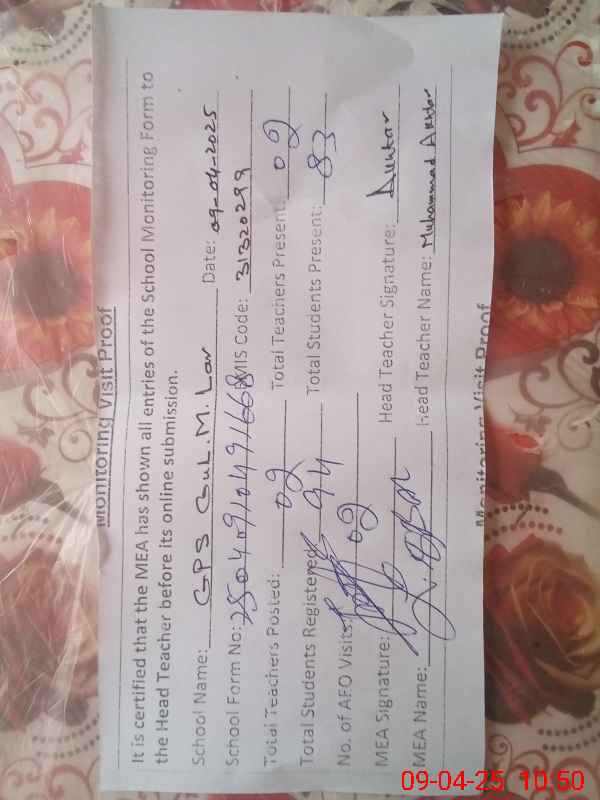 Monitoring Visit Proof
It is certified that the MEA has shown all entries of the School Monitoring Form to
the Head Teacher before its online submission.
School Name: GPS Gul.M. Lar Date: 09-04-2025
School Form No: MIS Code: 31320299
Total Teachers Posted: 02 Total Teachers Present: 02
Total Students Registered 94 Total Students Present: 83
No. of AEO Visits: 02
MEA Signature: Head Teacher Signature: Akhtar
MEA Name: Head Teacher Name: Muhammad Akhtar
Monitoring Visit Proof
09-04-25 10:50